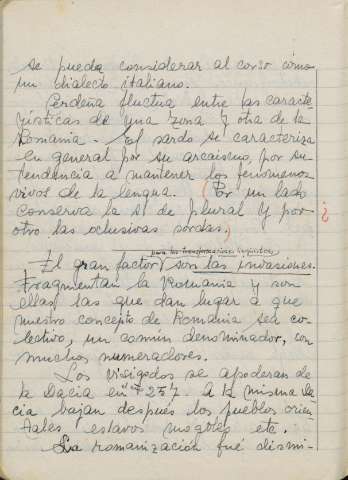 se pueda considerar al corso como
un dialecto italiano.
Cerdeña fluctua entre las caracte-
rísticas de una zona y otra de la
Romania. El sardo se caracteriza
en general por su arcaismo, por su
tendencia a mantener los fenomenos
vivos de la lengua. (Por un lado
conserva la s de plural y por
otro las oclusivas sordas.) ?
para las transformaciones lingüísticas
El gran factor son las invasiones.
Fragmentan la Romania y son
ellas las que dan lugar a que
nuestro concepto de Romania sea co-
lectivo, un común denominador, con
muchos numeradores.
Los visigodos se apoderan de
la Dacia en 257. A la misma Da-
cia bajan despues los pueblos orien-
tales eslavos mogoles etc.
La romanización fué dismi-